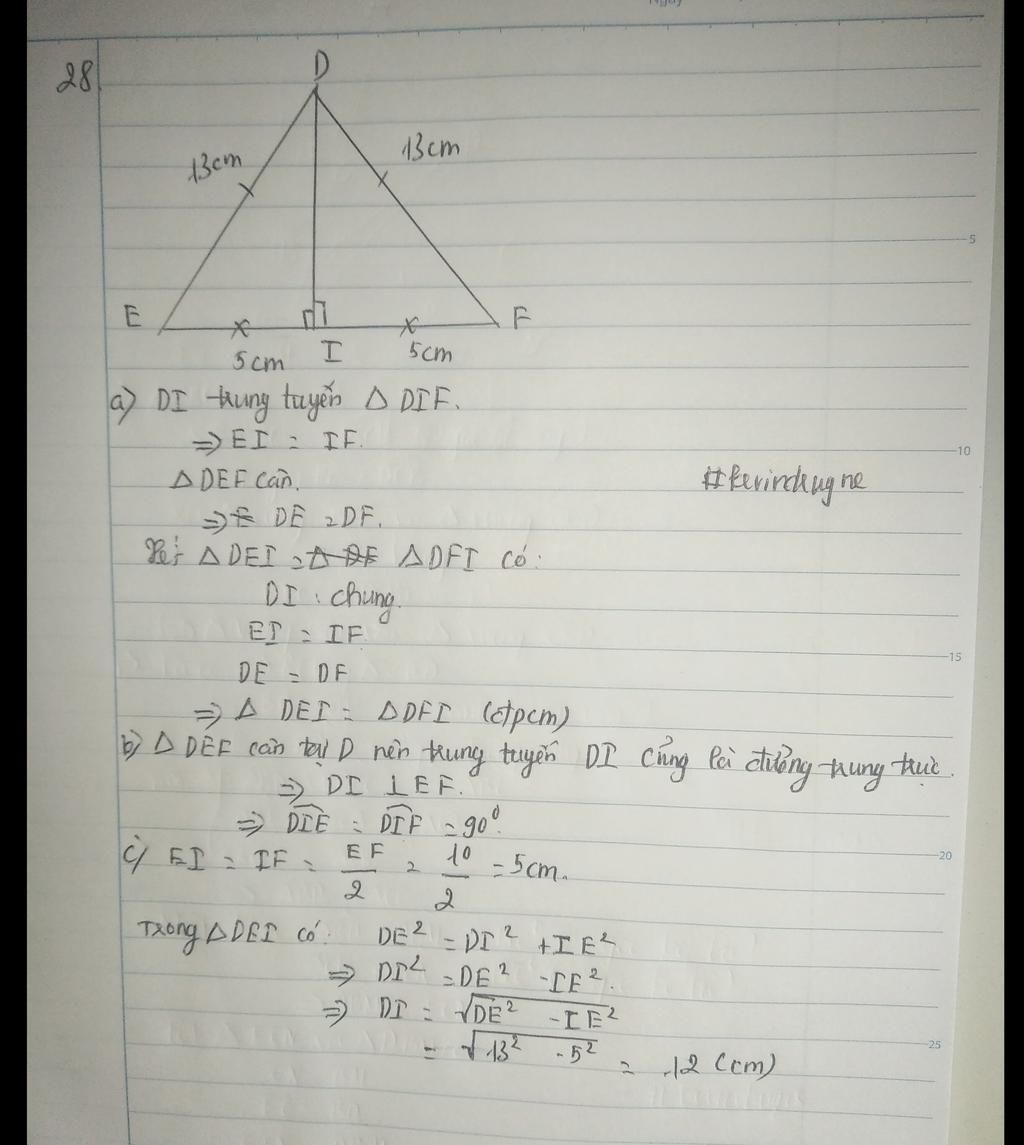 28
D
13cm
13cm
E
F
5cm
I
5cm
a) DI trung tuyến △ DIF.
⇒ EI = IF.
△ DEF cân.
#kevinchugne
⇒ DE = DF.
Xét △ DEI = △ DFI có:
DI : chung.
EI = IF
DE = DF
⇒ △ DEI = △ DFI (đpcm)
b) △ DEF cân tại D nên trung tuyến DI cũng là đường trung trực.
⇒ DI ⊥ EF.
⇒ DIE = DIF = 90⁰.
c) EI = IF = EF/2 = 10/2 = 5cm.
Trong △ DEI có: DE² = DI² + IE²
⇒ DI² = DE² - IE².
⇒ DI = √(DE² - IE²)
= √(13² - 5²) = 12 (cm)
5
10
15
20
25